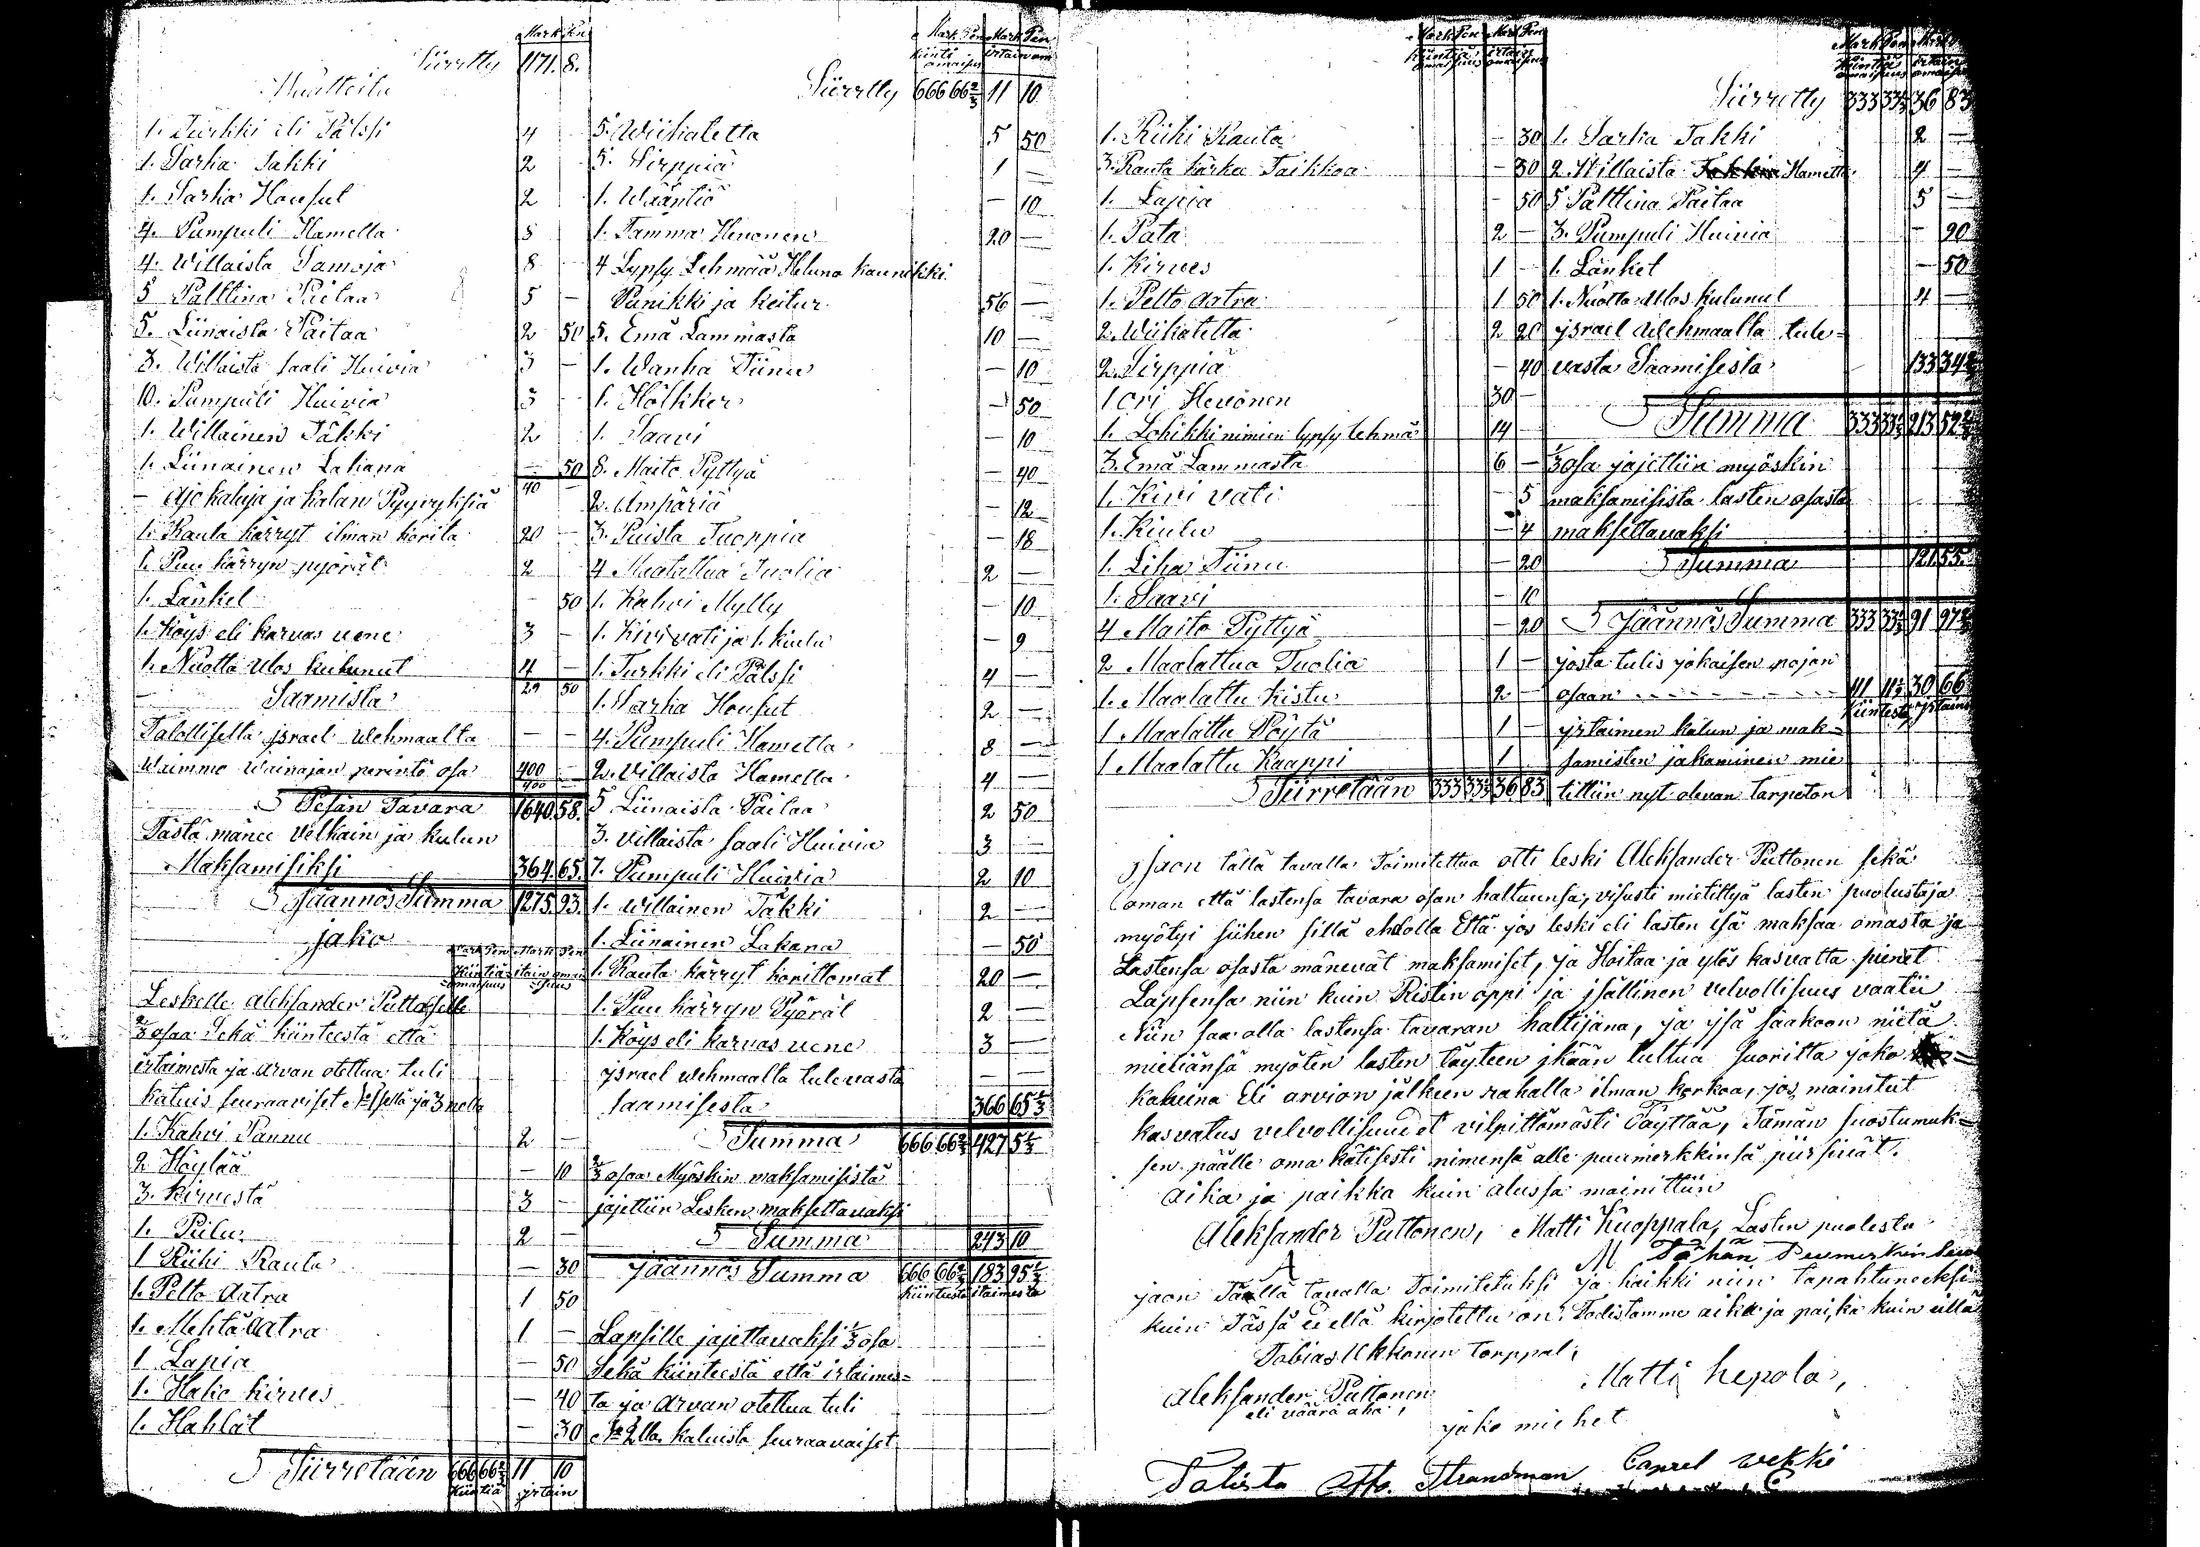 Mark Pen
Siirretty 1171. 8.
Waatteita
1. Turkki eli Pälssi 4
1. Sarka Takki 2
1. Sarka Housut 2
4. Pumpuli Hametta 8
4. Willaista Samoja 8
5 Palttina Paitaa 5 —
5. Liinaista Paitaa 2 50
3. Willaista saali Huivia 3 —
10. Pumpuli Huivia 3 —
1. Willainen Täkki 2 —
1. Liinainen Lakana — 50
40 —
— Ajo kaluja ja kalan Pyyryksiä
1. Rauta kärryt ilman korita 20 —
1. Puu kärryn pyörät 2 —
1. Länket — 50
1. Köys eli karvas vene 3 —
1. Nuotta Ulos kulunut 4 —
29 50
Saamista
Talollisetta jsrael Wehmaalta — —
Waimmo Wainajan perintö osa 400 —
400 —
Pesän Tavara 1640. 58.
Tästä mänee Velkain ja kulun
Maksamisiksi 364. 65.
Jäännös Summa 1275. 93.
jako
Mark Pen Mark Pen
Leskelle Aleksander Puttoselle
2/3 osaa Sekä kiinteestä että
irtaimesta ja Arvan otettua tuli
kaluis seuraaviset No 1sellä ja 3mella
1. Kahvi Pannu 2 —
2 Höylää — 10
3. Kirvestä 3 —
1. Piilu 2 —
1 Riihi Rauta — 30
1. Pelto Aatra 1 50
1. Mehtä Aatra 1 —
1 Lapia — 50
1. Halio kirves — 40
1. Hahlat — 30
Siirretään 666 66 2/3 11 10
kiintiä yrtain
Mark Pen Mark Pen
Siirretty 666 66 2/3 11 10
5. Wiikatetta 5 50
5. Sirppiä 1 —
1. Wääntiö — 10
1. Tamma Hevonen 20 —
4 Lypsy Lehmää Heluna kaunikki
Punikki ja Keitur 56 —
5. Emä Lammasta 10 —
1. Wanha Tiinu — 10
1. Hölkker — 50
1. Saavi — 10
8. Maito Pyttyä — 40
2. Ämpäriä — 12
3. Puista Tuoppia — 18
4 Maalattua Tuolia 2 —
1. Kahvi Mylly — 10
1. Kivi vati ja 1. kiulu — 9
1. Turkki eli Pälssi 4 —
1. Sarka Housut 2 —
4. Pumpuli Hametta 8 —
2. Villaista Hametta 4 —
5 Liinaista Paitaa 2 50
3. Villaista saali Huivia 3 —
7. Pumpuli Huivia 2 10
1. Willainen Täkki 2 —
1. Liinainen Lakana — 50
1. Rauta kärryt korittomat 20 —
1. Puu kärryn Pyörät 2 —
1. Köys eli karvas vene 3 —
jsrael Wehmaalta tulevasta — —
saamisesta 366 65 1/3
Summa 666 66 2/3 427 5 1/3
2/3 osaa Myöskin maksamisistä
jajettiin Lesken maksettavaksi
Summa 243 10
Jäännös Summa 666 66 2/3 183 95 1/3
kiintestä itaimesta
Lapsille jajettavaksi 1/3 osa
Sekä kiinteestä että irtaimes=
ta ja Arvan otettua tuli
No 2lla kaluista seuraavaiset
Mark Pen Mark Pen
1. Riihi Rauta — 30
3. Rauta kärkee Taikkoa — 30
1. Lapia — 50
1. Pata 2 —
1. Kirves 1 —
1. Pelto Aatra 1 50
2. Wiikatetta 2 20
2. Sirppiä — 40
1 ori Hevonen 30 —
1. Lohikki nimien lypsy lehmä 14 —
3. Emä Lammasta 6 —
1. Kivi vati — 5
1. Kiulu — 4
1. Liha Tiinu — 20
1. Saavi — 10
4 Maito Pyttyä — 20
2 Maalattua Tuolia 1 —
1. Maalattu kistu 2 —
1 Maalattu Pöytä 1 —
1 Maalattu Kaappi 1
Siirretään 333 33 1/3 36 83
Siirretty 333 33 1/3 36 83
1. Sarka Takki 2 —
2. Willaista Hametta 4 —
5 Palttina Paitaa 5 —
3. Pumpuli Huivia — 90
1. Länket — 50
1. Nuotta Ulos kulunut 4 —
jsrael Wehmaalta tule=
vasta Saamisesta 133 34 2/3
Summa 333 33 1/3 213 52 2/3
1/3 osa jajettiin myöskin
maksamisista lasten osasta
maksettavaksi
Summa 121 55.
Jäännös Summa 333 33 1/3 91 97 2/3
josta tulis jokaisen pojan
osaan 111 11 1/9 30 66
kiintestä yrtaime
yrtaimen kalun ja mak=
samisten jakaminen mie
tittiin nyt olevan tarpeton
Jaon tällä tavalla Toimitettua otti leski Aleksander Puttonen sekä
oman että lastensa tavara osan haltuunsa, visusti mietittyä lasten puolustaja
myötyi siihen sillä ehdolla Että jos leski eli lasten isä maksaa omasta ja
Lastensa osasta mänevät maksamiset, ja Hoitaa ja ylös kasvatta pienet
Lapsensa niin kuin Ristin oppi ja jsällinen velvollisuus vaatii
Niin saa olla lastensa tavaran haltijana, ja jsä saakoon niitä
mieliänsä myöten lasten täyteen jkään tultua suoritta joko
kaluina Eli arvion jälkeen rahalla ilman korkoa, jos mainitut
kasvatus velvollisuudet vilpittömästi Täyttää, Tämän suostumuk=
sen päälle oma kätisesti nimensä alle puumerkkinsä piirsivät.
Aika ja paikka kuin alussa mainittiin
Aleksander Puttonen, Matti Kuoppala, Lasten puolesta
M Tähän Puumerkin
jaon Täällä tavalla Toimitetuksi ja kaikki niin tapahtuneeksi
kuin Tässä eellä kirjotettu on, Todistamme aika ja paikka kuin eillä
Tobias Ukkonen Torppal:
Matti hepola,
Aleksander Puttonen
eli väärä aho,
jako miehet
Talista Otto. Strandman Caprel wekki